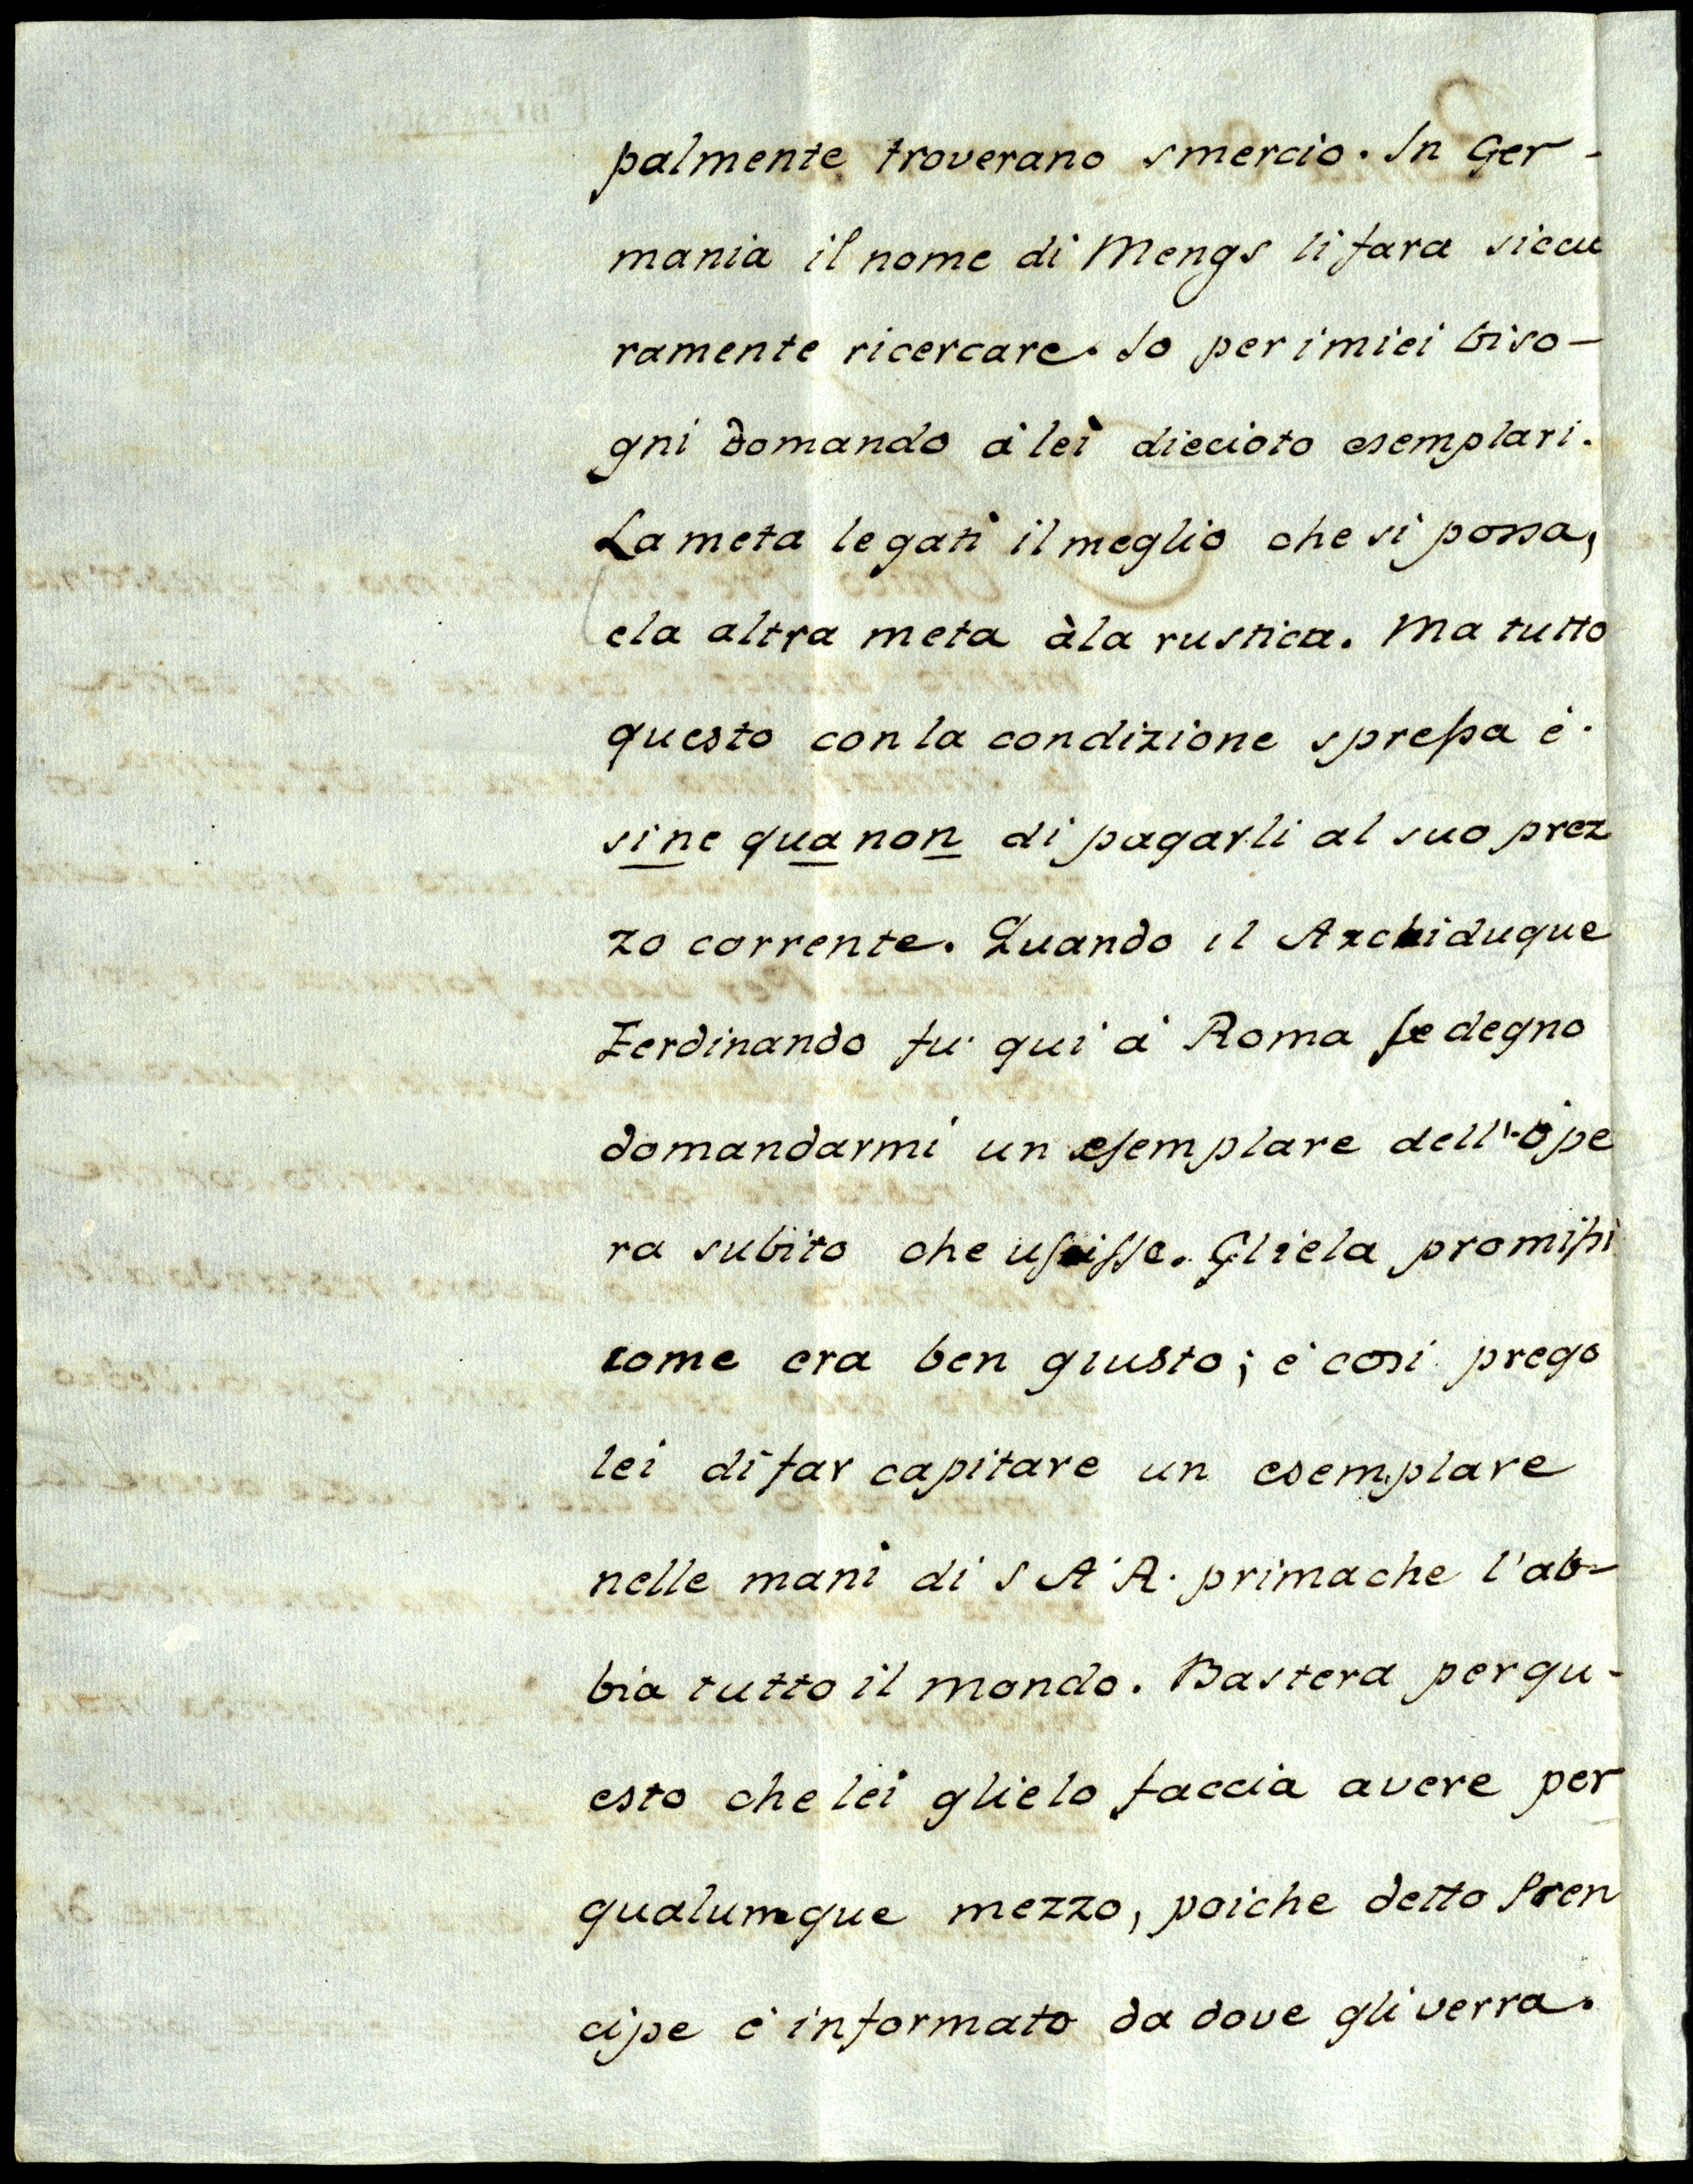 palmente troverano smercio. In Ger-
mania il nome di Mengs li fara siccu
ramente ricercare. Io per i miei biso-
gni domando à lei diecioto esemplari.
La meta legati il meglio che si possa,
e la altra meta à la rustica. Ma tutto
questo con la condizione spressa è
sine qua non di pagarli al suo prez
zo corrente. Quando il Archiduque
Ferdinando fu qui à Roma se degno
domandarmi un esemplare dell'ope
ra subito che uscisse. Gliela promissi
come era ben giusto; è cosi prego
lei di far capitare un esemplare
nelle mani di S A R. prima che l'ab-
bia tutto il mondo. Bastera per qu-
esto che lei glielo faccia avere per
qualumque mezzo, poiche detto Pren
cipe è informato da dove gli verra.